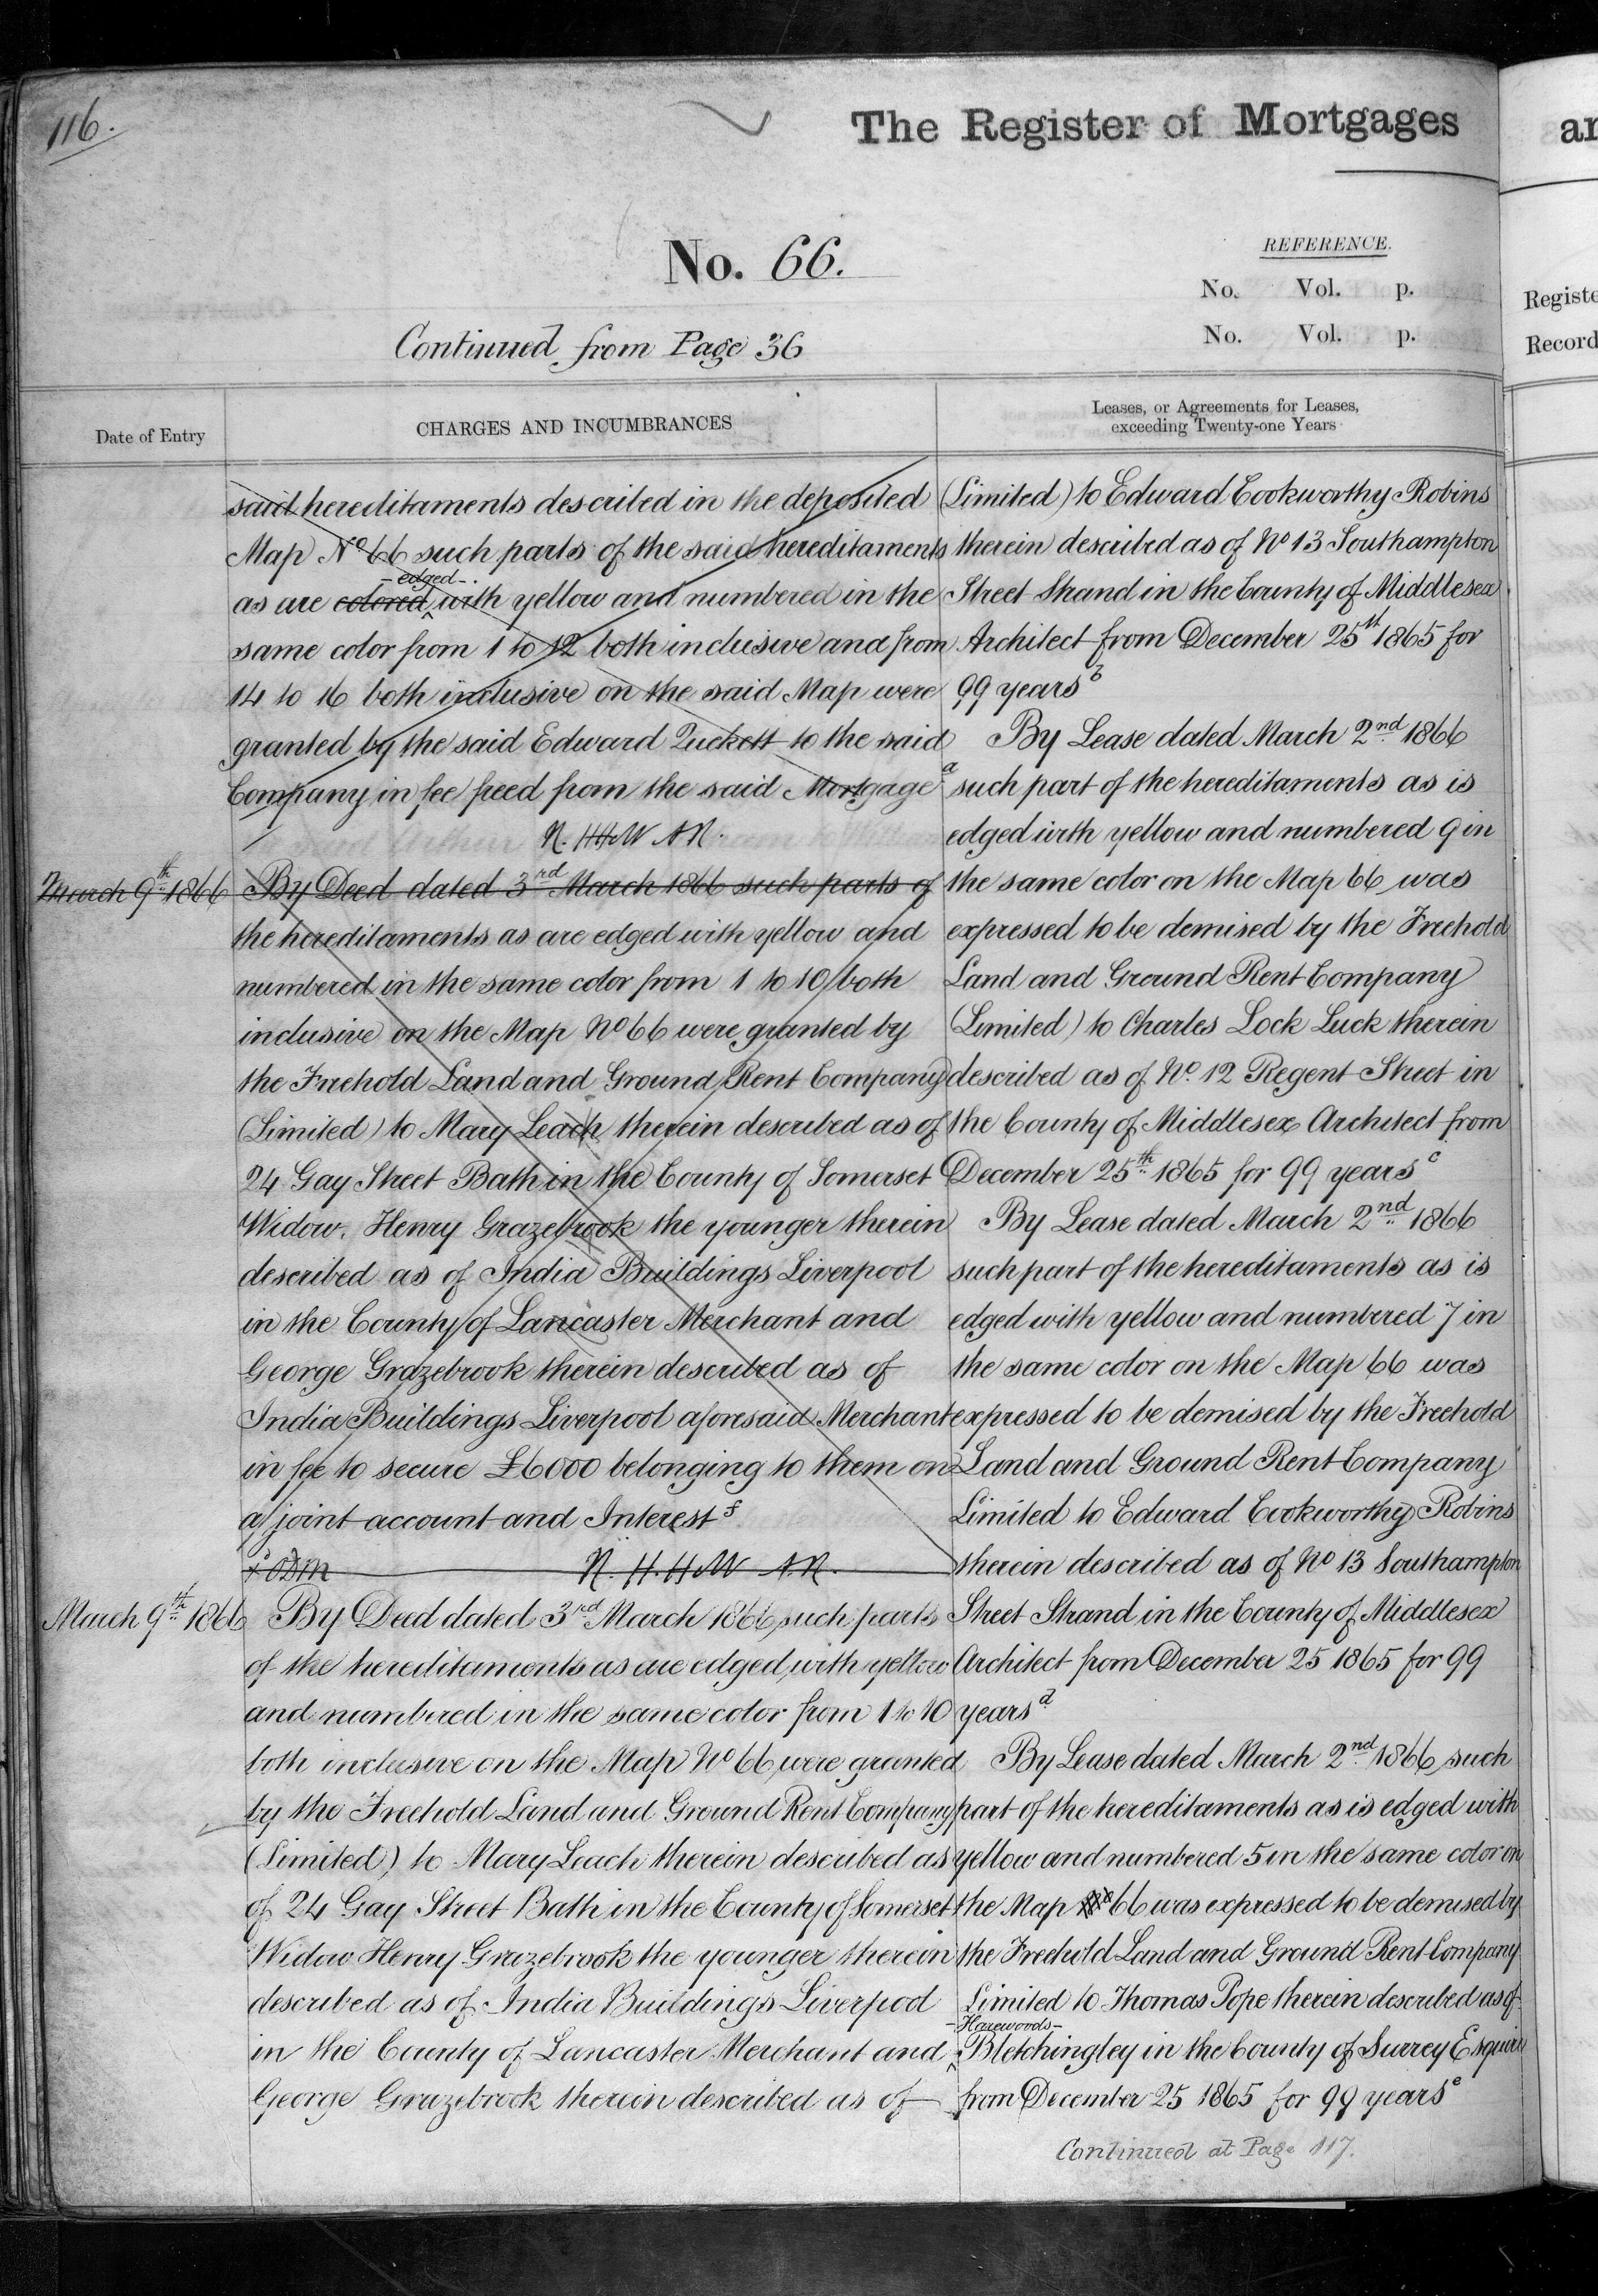 116.
The Register of Mortgages
No. 66.
REFERENCE.
No. Vol. p.
No. Vol. p.
Continued from Page 36
Date of Entry
CHARGES AND INCUMBRANCES
said hereditaments described in the deposited
Map No 66 such parts of the said hereditaments
edged
as are colored with yellow and numbered in the
same color from 1 to 12 both inclusive and from
14 to 16 both inclusive on the said Map were
granted by the said Edward Tuckett to the said
Company in fee freed from the said Mortgage a
N. HHW AN.
March 9th 1866 By Deed dated 3rd March 1866 such parts of
the hereditaments as are edged with yellow and
numbered in the same color from 1 to 10 both
inclusive on the Map No 66 were granted by
the Freehold Land and Ground Rent Company
(Limited) to Mary Leach therein described as of
24 Gay Street Bath in the County of Somerset
Widow. Henry Grazebrook the younger therein
described as of India Buildings Liverpool
in the County of Lancaster Merchant and
George Grazebrook therein described as of
India Buildings Liverpool aforesaid Merchant
in fee to secure £6000 belonging to them on
a joint account and Interest f
N. H. H. W A.N.
March 9th 1866 By Deed dated 3rd March 1866 such parts
of the hereditaments as are edged with yellow
and numbered in the same color from 1 to 10
both inclusive on the Map No 66 were granted
by the Freehold Land and Ground Rent Company
(Limited) to Mary Leach therein described as
of 24 Gay Street Bath in the County of Somerset
Widow Henry Grazebrook the younger therein
described as of India Buildings Liverpool
in the County of Lancaster Merchant and
George Grazebrook therein described as of
Leases, or Agreements for Leases,
exceeding Twenty-one Years
(Limited) to Edward Cookworthy Robins
therein described as of No 13 Southampton
Street Strand in the County of Middlesex
Architect from December 25th 1865 for
99 years b
By Lease dated March 2nd 1866
such part of the hereditaments as is
edged with yellow and numbered 9 in
the same color on the Map 66 was
expressed to be demised by the Freehold
Land and Ground Rent Company
(Limited) to Charles Lock Luck therein
described as of No. 12 Regent Street in
the County of Middlesex Architect from
December 25th 1865 for 99 years c
By Lease dated March 2nd 1866
such part of the hereditaments as is
edged with yellow and numbered 7 in
the same color on the Map 66 was
expressed to be demised by the Freehold
Land and Ground Rent Company
Limited to Edward Cookworthy Robins
therein described as of No 13 Southampton
Street Strand in the County of Middlesex
Architect from December 25 1865 for 99
years d
By Lease dated March 2nd 1866 such
part of the hereditaments as is edged with
yellow and numbered 5 in the same color on
the Map 66 was expressed to be demised by
the Freehold Land and Ground Rent Company
Limited to Thomas Pope therein described as of
Harewoods
Bletchingley in the County of Surrey Esquire
from December 25 1865 for 99 years e
Continued at Page 117.
Registe
Record